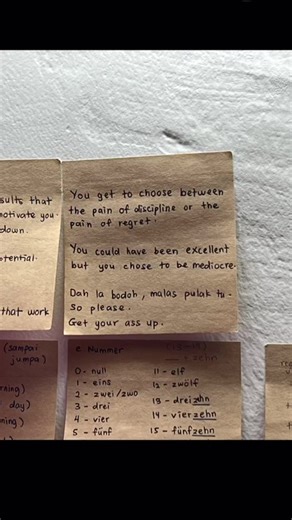 sults that
motivate you.
down.
otential.
that work
You get to choose between
the pain of discipline or the
pain of regret.
You could have been excellent
but you chose to be mediocre.
Dah la bodoh, malas pulak tu.
So please.
Get your ass up.
(sampai
jumpa)
ning)
day)
ning)
)
e Nummer
0 - null
1 - eins
2 - zwei/zwo
3 - drei
4 - vier
5 - fünf
+ zehn
11 - elf
12 - zwölf
13 - dreizehn
14 - vierzehn
15 - fünfzehn